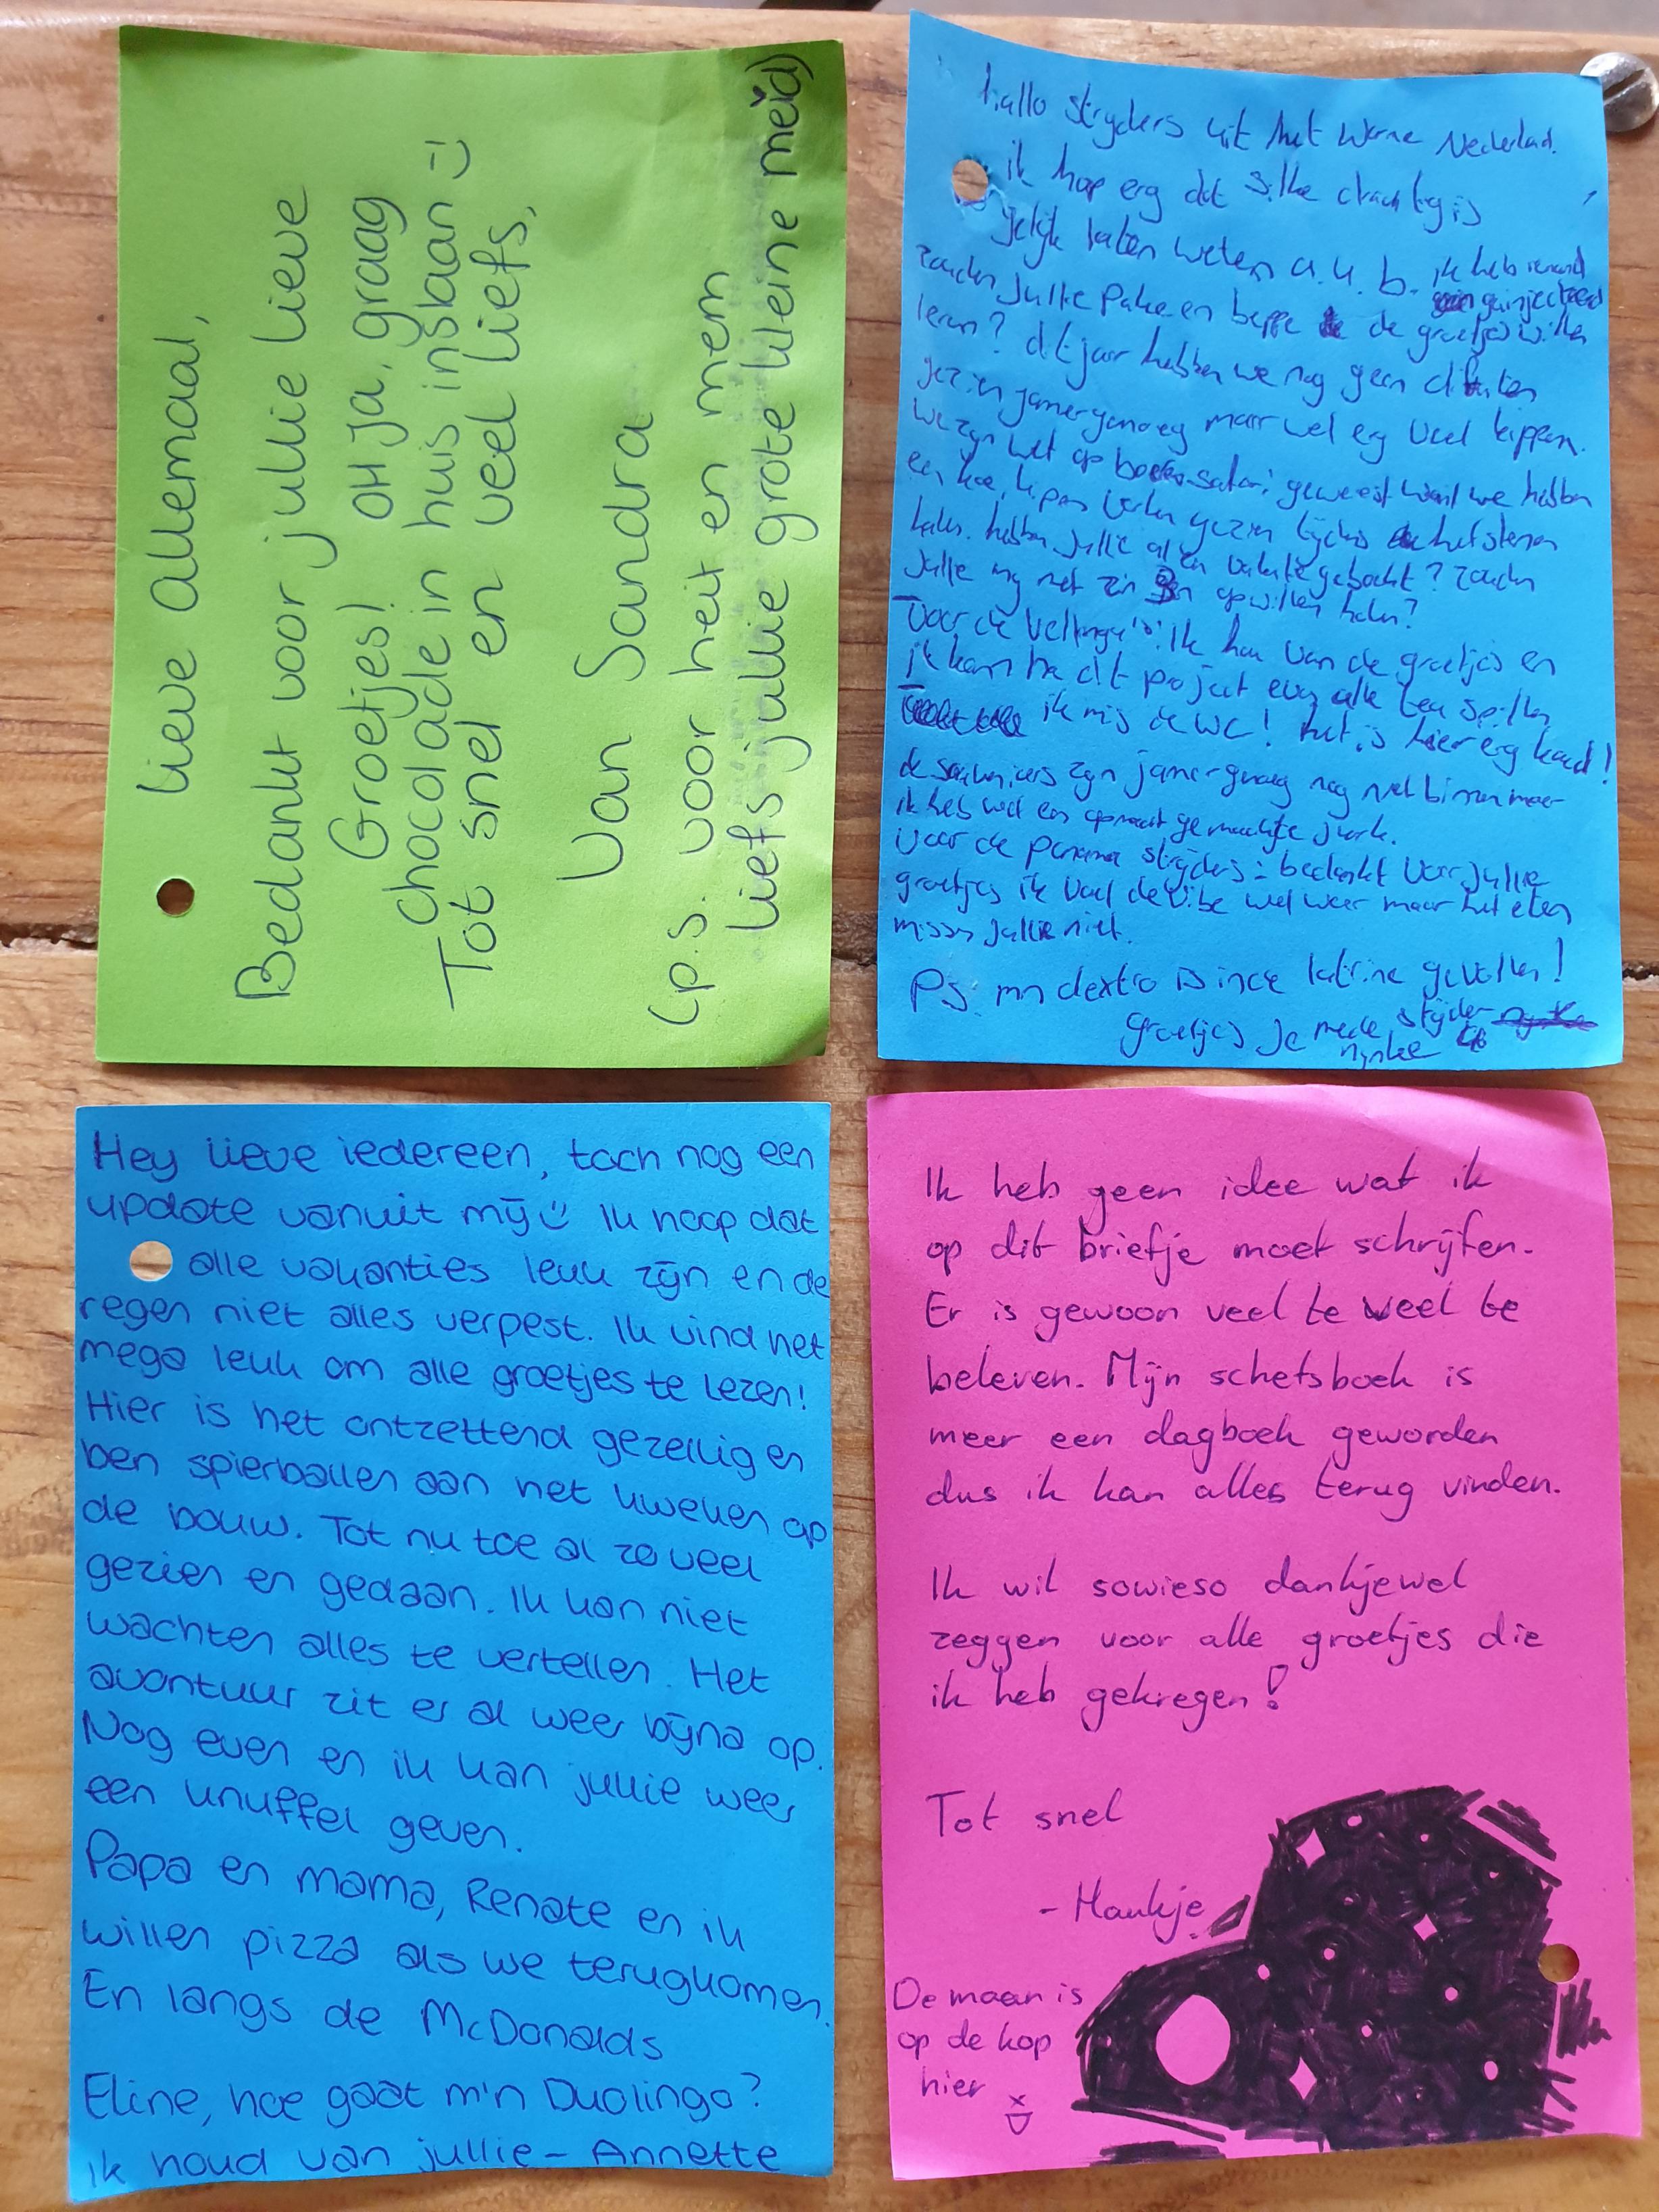 Lieve allemaal,
Bedankt voor jullie lieve
Groetjes! OH ja, graag
chocolade in huis inslaan :-)
Tot snel en veel liefs,
Van Sandra
(p.s. voor heit en mem
liefs jullie grote kleine meid)
hallo strijders uit het warme Nederland.
ik hop erg dat Silke drachtig is
gelijk laten weten a.u.b. ik heb iemand
geinjecteerd
zouden jullie pake en beppe de groetjes willen
leren? dit jaar hebben we nog geen
gezien jamergenoeg maar wel erg veel kippen.
we zijn wel op boeren safari geweest want we hebben
een koe, kipen, varken gezien tijdens het stenen
halen. hebben jullie al en vakantie geboekt? zouden
jullie mij met zin op willen halen?
Voor de ik hou van de groetjes en
ik kan na dit project
ik mis de WC! het is hier erg koud!
de zijn jamer genoeg nog niet binnen maar
ik heb wel een opmaat gemaakte jurk.
Voor de panama strijders: bedankt voor jullie
groetjes ik voel de vibe wel weer maar het eten
missen jullie niet.
PS. mn dextro is in de latrine gevallen!
groetjes je mede strijder
nynke
Hey lieve iedereen, toch nog een
update vanuit mij☺ Ik hoop dat
alle vakanties leuk zijn en de
regen niet alles verpest. Ik vind het
mega leuk om alle groetjes te lezen!
Hier is het ontzettend gezellig en
ben spierballen aan het kweken op
de bouw. Tot nu toe al zo veel
gezien en gedaan. Ik kan niet
wachten alles te vertellen. Het
avontuur zit er al weer bijna op.
Nog even en ik kan jullie weer
een knuffel geven.
Papa en mama, Renate en ik
willen pizza als we terugkomen.
En langs de McDonalds
Eline, hoe gaat m'n Duolingo?
ik houd van jullie - Annette
Ik heb geen idee wat ik
op dit briefje moet schrijfen.
Er is gewoon veel te veel te
beleven. Mijn schetsboek is
meer een dagboek geworden
dus ik kan alles terug vinden.
Ik wil sowieso dankjewel
zeggen voor alle groetjes die
ik heb gekregen!
Tot snel
- Haukje
De maan is
op de kop
hier xD